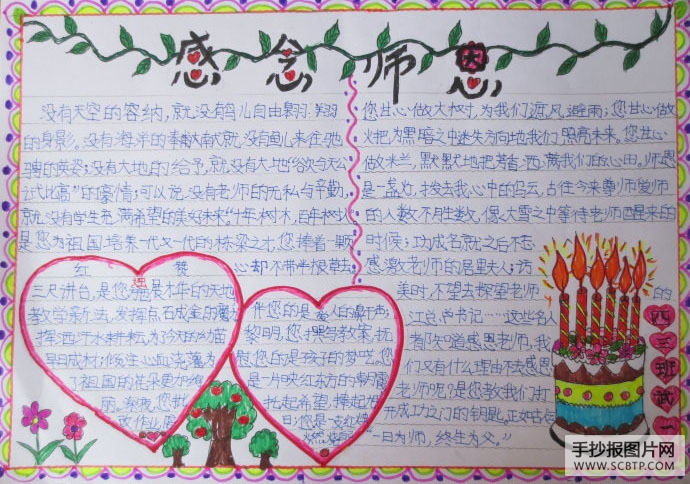 感念师恩
没有天空的容纳,就没有鸟儿自由翱翔
的身影。没有海洋的奉献就没有鱼儿来往驰
骋的英姿;没有大地的给予,就没有大地
试比高"的豪情;可以说,没有老师的无私与辛勤,
就没有学生充满希望的美好未来。"十年树木,百年树人
是您为祖国培养一代又一代的栋梁之才,您捧着一颗
心却不带半根草去
红赞
三尺讲台,是您
教学新法,发挥点石成金的魔
挥洒汗水耕耘,为了今天的幼苗
早日成材;倾注心血浇灌为
了祖国的花朵更加绚
丽。
伴您的是
黎明,您撰写教案,抚
慰您的是孩子的梦呓,您
是一片映红东方的朝霞
托起希望,捧起
日;您是一支红烛
燃
您甘心做大树,为我们遮风避雨;您甘心做
火把为黑暗之中迷失方向地我们照亮未来。您甘心
做米兰,默默地把芳香洒满我们的心田。师恩
是一盏灯,拨去我心中的乌云,古往今来尊师爱师
的人数不胜数,像大雪之中等待老师醒来的
时候;功成名就之后不忘
感激老师的居里夫人;方
美时,不望去探望老师的
江总书记……这些名人
都知道感恩老师,我
们又有什么理由不去感恩
老师呢?是您教我们打
开成功之门的钥匙,正如古
"一日为师,终生为父。"
四三班试一
手抄报图片网
WWW.SCBTP.COM